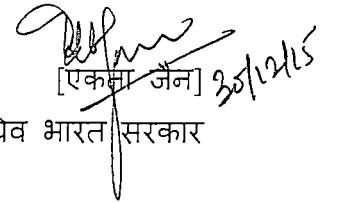 [एकता जैन] 30/12/15
भारत सरकार